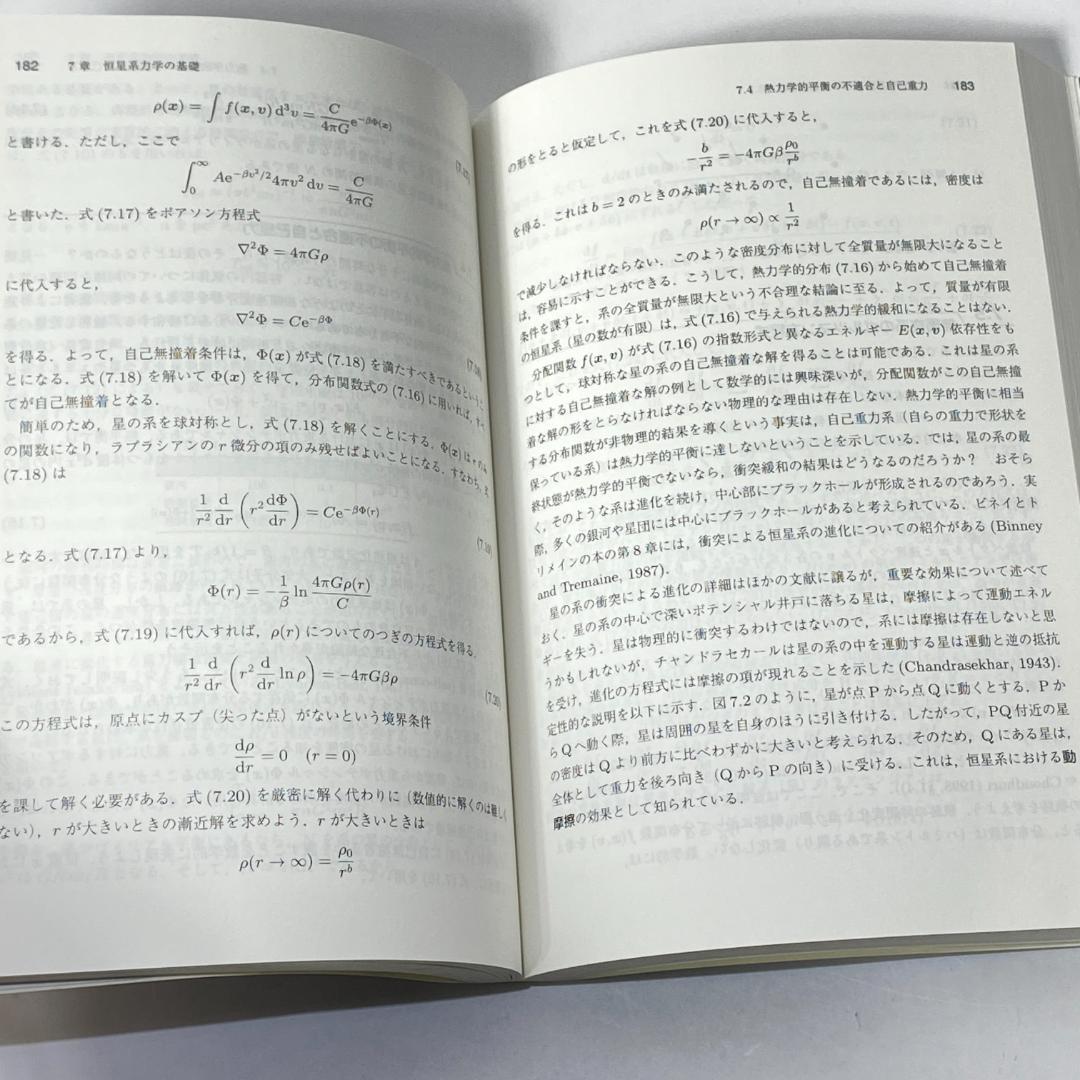 182 7章 恒星系力学の基礎
ρ(x) = ∫ f(x, v) d³v = C/4πG e^{-βΦ(x)}
(7.17)
と書ける．ただし，ここで
∫₀^∞ Ae^{-βv²/2} 4πv² dv = C/4πG
と書いた．式 (7.17) をポアソン方程式
∇²Φ = 4πGρ
に代入すると，
∇²Φ = Ce^{-βΦ}
(7.18)
を得る．よって，自己無撞着条件は，Φ(x) が式 (7.18) を満たすべきであるというこ
とになる．式 (7.18) を解いて Φ(x) を得て，分布関数式の (7.16) に用いれば，すべ
てが自己無撞着となる．
簡単のため，星の系を球対称とし，式 (7.18) を解くことにする．Φ(x) は r のみ
の関数になり，ラプラシアンの r 微分の項のみ残せばよいことになる．すなわち，式
(7.18) は
1/r² d/dr (r² dΦ/dr) = Ce^{-βΦ(r)}
(7.19)
となる．式 (7.17) より，
Φ(r) = -1/β ln 4πGρ(r)/C
であるから，式 (7.19) に代入すれば，ρ(r) についてのつぎの方程式を得る．
1/r² d/dr (r² d/dr ln ρ) = -4πGβρ
(7.20)
この方程式は，原点にカスプ（尖った点）がないという境界条件
dρ/dr = 0 (r = 0)
を課して解く必要がある．式 (7.20) を厳密に解く代わりに（数値的に解くのは難しく
ない），r が大きいときの漸近解を求めよう．r が大きいときは
ρ(r → ∞) = ρ₀/r^b
7.4 熱力学的平衡の不適合と自己重力 183
の形をとると仮定して，これを式 (7.20) に代入すると，
-b/r² = -4πGβ ρ₀/r^b
を得る．これは b = 2 のときのみ満たされるので，自己無撞着であるには，密度は
ρ(r → ∞) ∝ 1/r²
で減少しなければならない．このような密度分布に対して全質量が無限大になること
は，容易に示すことができる．こうして，熱力学的分布 (7.16) から始めて自己無撞着
条件を課すと，系の全質量が無限大という不合理な結論に至る．よって，質量が有限
の恒星系（星の数が有限）は，式 (7.16) で与えられる熱力学的緩和になることはない．
分配関数 f(x, v) が式 (7.16) の指数形式と異なるエネルギー E(x, v) 依存性をも
つとして，球対称な星の系の自己無撞着な解を得ることは可能である．これは星の系
に対する自己無撞着な解の例として数学的には興味深いが，分配関数がこの自己無撞
着な解の形をとらなければならない物理的な理由は存在しない．熱力学的平衡に相当
する分布関数が非物理的結果を導くという事実は，自己重力系（自らの重力で形状を
保っている系）は熱力学的平衡に達しないということを示している．では，星の系の最
終状態が熱力学的平衡でないなら，衝突緩和の結果はどうなるのだろうか？ おそら
く，そのような系は進化を続け，中心部にブラックホールが形成されるのであろう．実
際，多くの銀河や星団には中心にブラックホールがあると考えられている．ビネイとト
リメインの本の第 8 章には，衝突による恒星系の進化についての紹介がある (Binney
and Tremaine, 1987)．
星の系の衝突による進化の詳細はほかの文献に譲るが，重要な効果について述べて
おく．星の系の中心で深いポテンシャル井戸に落ちる星は，摩擦によって運動エネル
ギーを失う．星は物理的に衝突するわけではないので，系には摩擦は存在しないと思
うかもしれないが，チャンドラセカールは星の系の中を運動する星は運動と逆の抵抗
を受け，進化の方程式には摩擦の項が現れることを示した (Chandrasekhar, 1943)．
定性的な説明を以下に示す．図 7.2 のように，星が点 P から点 Q に動くとする．P か
ら Q へ動く際，星は周囲の星を自身のほうに引き付ける．したがって，PQ 付近の星
の密度は Q より前方に比べわずかに大きいと考えられる．そのため，Q にある星は，
全体として重力を後ろ向き（Q から P の向き）に受ける．これは，恒星系における動
摩擦の効果として知られている．